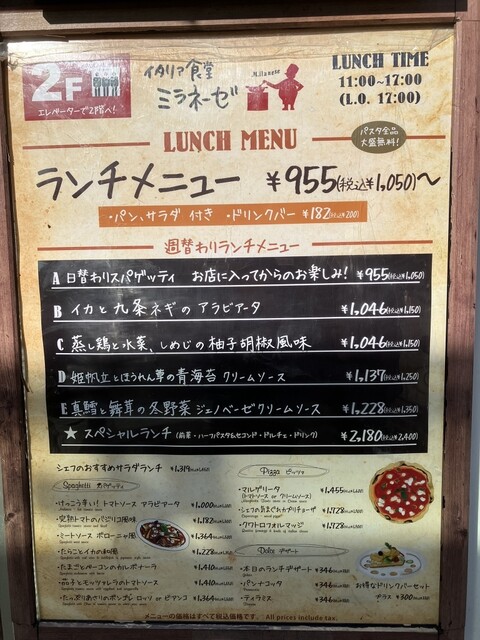 2F
エレベーターで2階へ!
イタリア食堂
ミラネーゼ
Milanese
LUNCH TIME
11:00~17:00
(L.O. 17:00)
LUNCH MENU
パスタ全品
大盛無料!
ランチメニュー ¥955(税込¥1,050)~
・パン、サラダ 付き ・ドリンクバー ¥182(税込¥200)
週替わりランチメニュー
A 日替わりスパゲッティ お店に入ってからのお楽しみ! ¥955(税込¥1,050)
B イカと九条ネギの アラビアータ ¥1,046(税込¥1,150)
C 蒸し鶏と水菜、しめじの柚子胡椒風味 ¥1,046(税込¥1,150)
D 姫帆立とほうれん草の青海苔 クリームソース ¥1,137(税込¥1,250)
E 真鱈と舞茸の冬野菜ジェノベーゼクリームソース ¥1,228(税込¥1,350)
★ スペシャルランチ (前菜・ハーフパスタ&セコンド・ドルチェ・ドリンク) ¥2,180(税込¥2,400)
シェフのおすすめサラダランチ ¥1,319
Spaghetti スパゲッティ
・けっこう辛い! トマトソース アラビアータ ¥1,000
・完熟トマトのバジリコ風味 ¥1,182
・ミートソース ボローニャ風 ¥1,364
・たらことイカの和風 ¥1,228
・たまごとベーコンのカルボナーラ ¥1,410
・茄子とモッツァレラのトマトソース ¥1,410
・たっぷりあさりのボンゴレ ロッソ or ビアンコ ¥1,364
Pizza ピッツァ
・マルゲリータ ¥1,455
(トマトソース or クリームソース)
・シェフの気まぐれカプリチョーザ
・クワトロフォルマッジ
Dolce デザート
・本日のランチデザート ¥346
・パンナコッタ ¥346
・ティラミス ¥346
お得なドリンクバーセット
プラス ¥300
メニューの価格はすべて税込価格です。 All prices include tax.